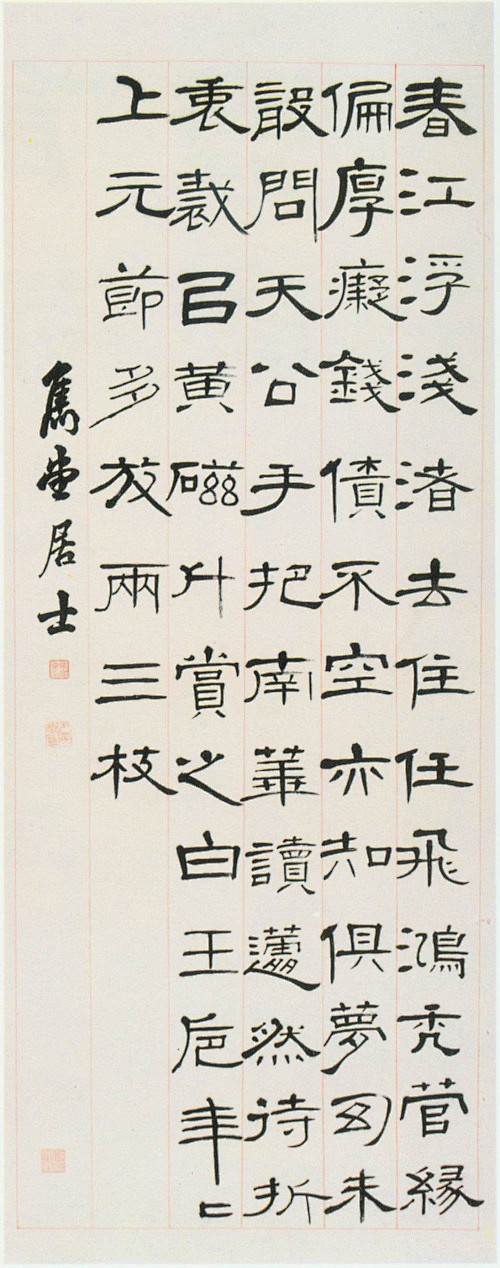 春江浮淺渚去住任飛鴻禿菅緣
偏厚癡錢債不空亦知俱夢幻未
敢問天公手把南華讀蘧然待折
衷裁以黃磁斗賞之白玉卮年々
上元節多放兩三枝
居士